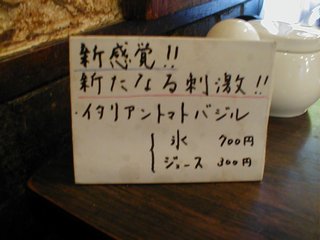 新感覚!!
新たなる刺激!!
・イタリアントマトバジル
氷 700円
ジュース 300円